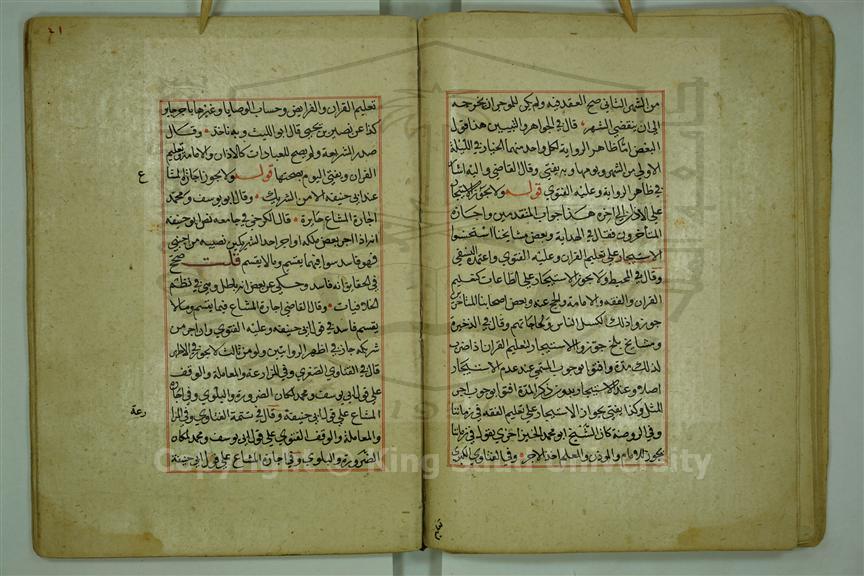 من الشهر الثاني صح العقد فيه ولم يكن للموجر ان يخرجه
الى ان ينقضي الشهر قال في الجواهر والتبيين هذا قول
البعض اما ظاهر الرواية لكل واحد منهما الخيار في الليلة
الاولى من الشهر ويومها وبه يفتى وقال القاضي واليه اشار
في ظاهر الرواية وعليه الفتوى قوله ولا يجوز الاستيجار
على الاذان الى اخره هذا جواب المتقدمين واجازه
المتاخرون فقال في الهداية وبعض مشايخنا استحسنوا
الاستيجار على تعليم القران وعليه الفتوى واعتمده النسفي
وقال في المحيط ولا يجوز الاستيجار على الطاعات كتعليم
القران والفقه والامامة والحج عنه وبعض اصحابنا المتاخرين
جوزوا ذلك لكسل الناس ولحاجاتهم وقال في الذخيرة
ومشايخ بلخ جوزوا الاستيجار لتعليم القران اذا ضرب
لذلك مدة وافتوا بوجوب المسمى عند عدم الاستيجار
اصلا وعند الاستيجار بدون ذكر المدة افتوا بوجوب اجر
المثل وكذا يفتى بجواز الاستيجار على تعليم الفقه في زماننا
وفي الروضة كان الشيخ ابو محمد الخيزاخزي يقول في زماننا
يجوز للامام والموذن والمعلم اخذ الاجر وفي الفتاوى الكبرى
تعليم
٢١
تعليم القران والفرايض وحساب الوصايا وغيرها باجر جايز
كذا عن نصير بن يحيى قال ابو الليث وبه ناخذ وقال
صدر الشريعة ولم يصح للعبادات كالاذان والامامة وتعليم
القران ويفتى اليوم بصحتها قوله ولا يجوز اجارة المشاع
ع
عند ابي حنيفة الا من الشريك وقال ابو يوسف ومحمد
اجارة المشاع جايزة قال الكرخي في جامعه نص ابو حنيفة
انه اذا اجر بعض ملكه او اجر احد الشريكين نصيبه من اجنبي
فهو فاسد سوا فيما يقسم وما لا يقسم قلت صحح
في الحقايق انه فاسد وحكى عن بعض انه باطل وبين في نظم
الخلافيات وقال القاضي اجارة المشاع فيما يقسم وما لا
يقسم فاسد في قول ابي حنيفة وعليه الفتوى وان اجر من
شريكه جاز في اظهر الروايتين ولو من ثالث لا يجوز في الاظهر
قال في الفتاوى الصغرى وفي المزارعة والمعاملة والوقف
على قول ابي يوسف ومحمد لمكان الضرورة والبلوى وفي اجارة
المشاع على قول ابي حنيفة وقال في تتمة الفتاوى وفي المزا
رعة
والمعاملة والوقف الفتوى على قول ابي يوسف ومحمد لمكان
الضرورة والبلوى وفي اجارة المشاع على قول ابي حنيفة
Copyright © King Saud University